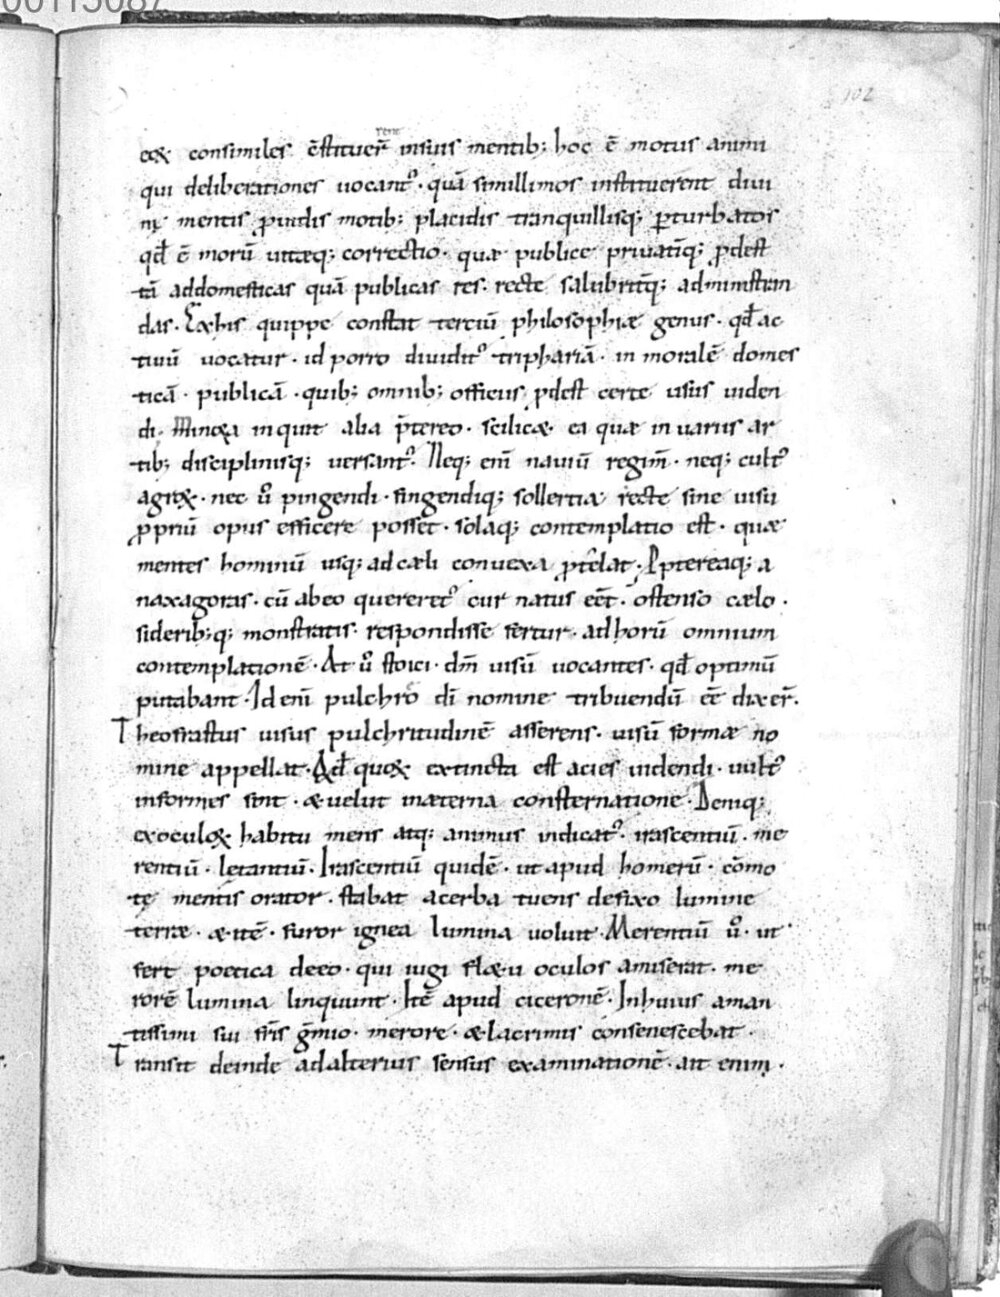 00113087
102
eoꝝ consimiles ẽstituer̃ in suis mentib; hoc ẽ motus animi
rent
qui deliberationes uocant᷒ · quã simillimos instituerent diui
nę mentis ꝓuidis motib; placidis tranquillisq; ꝑturbatos
qđ ẽ morũ uitæq; correctio · quæ publice priuatĩq; ꝓdest
tã addomesticas quã publicas res · recte salubritq̃; administran
das · Ex his quippe constat terciũ philosophiæ genus · qđ ac
tiuũ uocatur · id porro diuidit᷒ triphariã · in moralẽ domes
ticã · publicã · quib; omnib; officiis ꝓdest certe usus uiden
di · Minora inquit alia p̃tereo · scilicæ · ea quæ in uariis ar
tib; disciplinisq; uersant᷒. Neq; eni᷉ nauiũ regim̃ · neq; cult᷒
agroꝝ · nec u᷒ pingendi · fingendiq; sollertia recte sine uisu
ꝓpriũ opus efficere posset · solaq; contemplatio est · quæ
mentes hominũ usq; ad cæli conuexa ꝓtelat · Ꝓptereaq; a
naxagoras · cũ ab eo quereret᷒ cur natus eẽt · ostenso cælo ·
siderib;q; monstratis · respondisse fertur · ad horũ omnium
contemplationẽ · At u᷒ stoici · dm̃ uisũ uocantes · qđ optimũ
putabant · Id eni᷉ pulchro dĩ nomine tribuendũ eẽ dixer̃.
Theofrastus uisus pulchritudinẽ asserens · uisũ formæ no
mine appellat · Ađ quoꝝ extincta est acies uidendi · uult᷒
informes sint · æ uelut in æterna consternatione · Deniq;
ex oculoꝝ habitu mens atq; animus indicat᷒ · irascentiũ · me
rentiũ · letantiũ · Irascentiũ quidẽ · ut apud homerũ · cõmo
tę mentis orator · stabat acerba tuens defixo lumine
terræ · æ itẽ · furor ignea lumina uoluit · Merentiũ u᷒ · ut
fert poetica deeo · qui iugi flæu oculos amiserat · me
rorẽ lumina linquunt · Itẽ apud ciceronẽ · In huius aman
tissimi sui fr̃is g̃mio · merore · æ lacrimis consenescebat ·
Transit deinde ad alterius sensus examinationẽ · ait enim ·